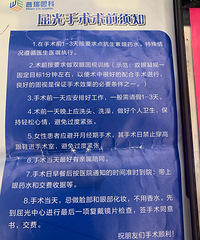 普瑞眼科
屈光手术术前须知
1.在手术前1~3天按要求点抗生素眼药水，特殊情
况遵循医生医嘱执行。
2.术前按要求做双眼固视训练（示范：双眼凝视一
固定目标1分钟左右，以使术中很好的配合手术进行，
良好的固视是保证手术效果的必要条件之一。）
3.术前一天应安排好工作，一般需请假1~3天。
4.术前一天晚上应洗头、洗澡，做好个人卫生，保
持轻松心情，避免过度紧张。
5.女性患者应避开月经期手术，其手术日禁止穿高
跟鞋进手术室，避免过度紧张。
6.手术当天最好有亲属陪同。
7.手术日早餐后按医院通知的时间准时到院；带上
眼药水和交费收据等。
8.手术当天，忌做脸部和眼部化妆，不用香水，先
到屈光中心进行最后一项复戴镜片检查，签手术同意
书，交费。
祝朋友们手术顺利！